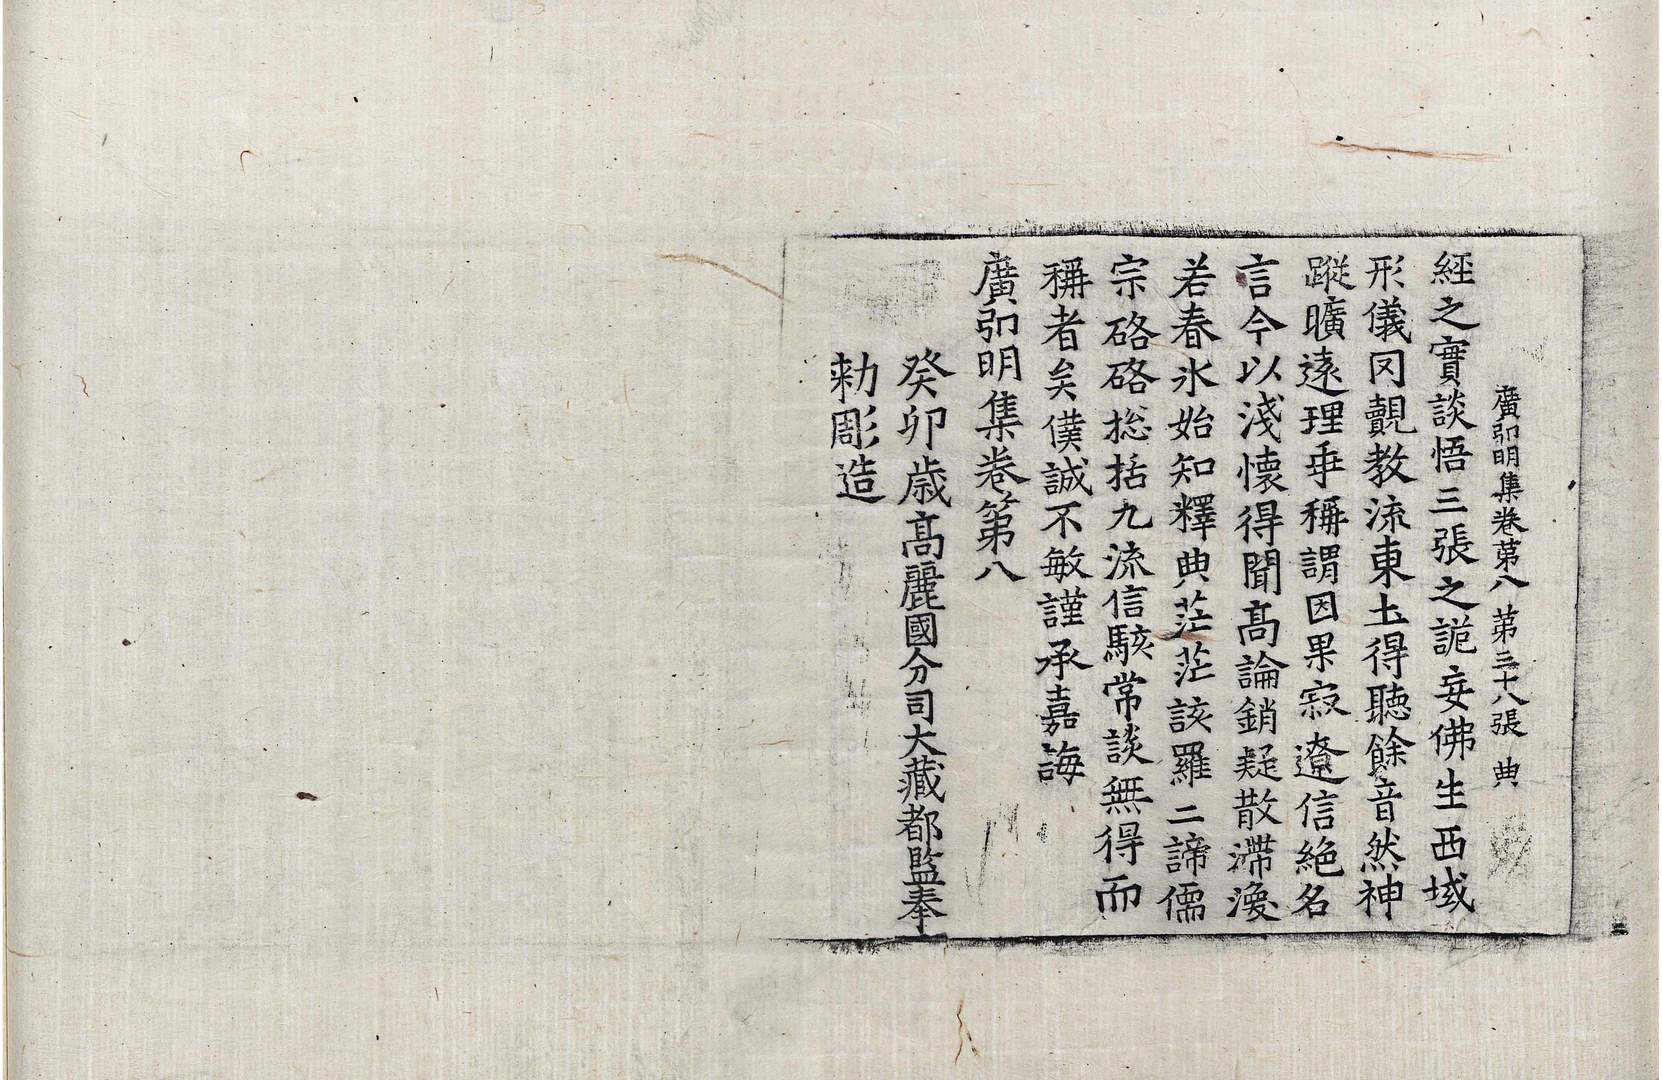 廣弘明集卷第八 第三十八張 典
經之實談悟三張之詭妄佛生西域
形儀罔覿教流東土得聽餘音然神
蹤曠遠理乖稱謂因果寂遼信絶名
言今以淺懷得聞髙論銷疑散滯渙
若春氷始知釋典茫茫該羅二諦儒
宗硌硌捴括九流信駭常談無得而
稱者矣僕誠不敏謹承嘉誨
廣弘明集卷第八
癸卯歳髙麗國分司大藏都監奉
勅彫造